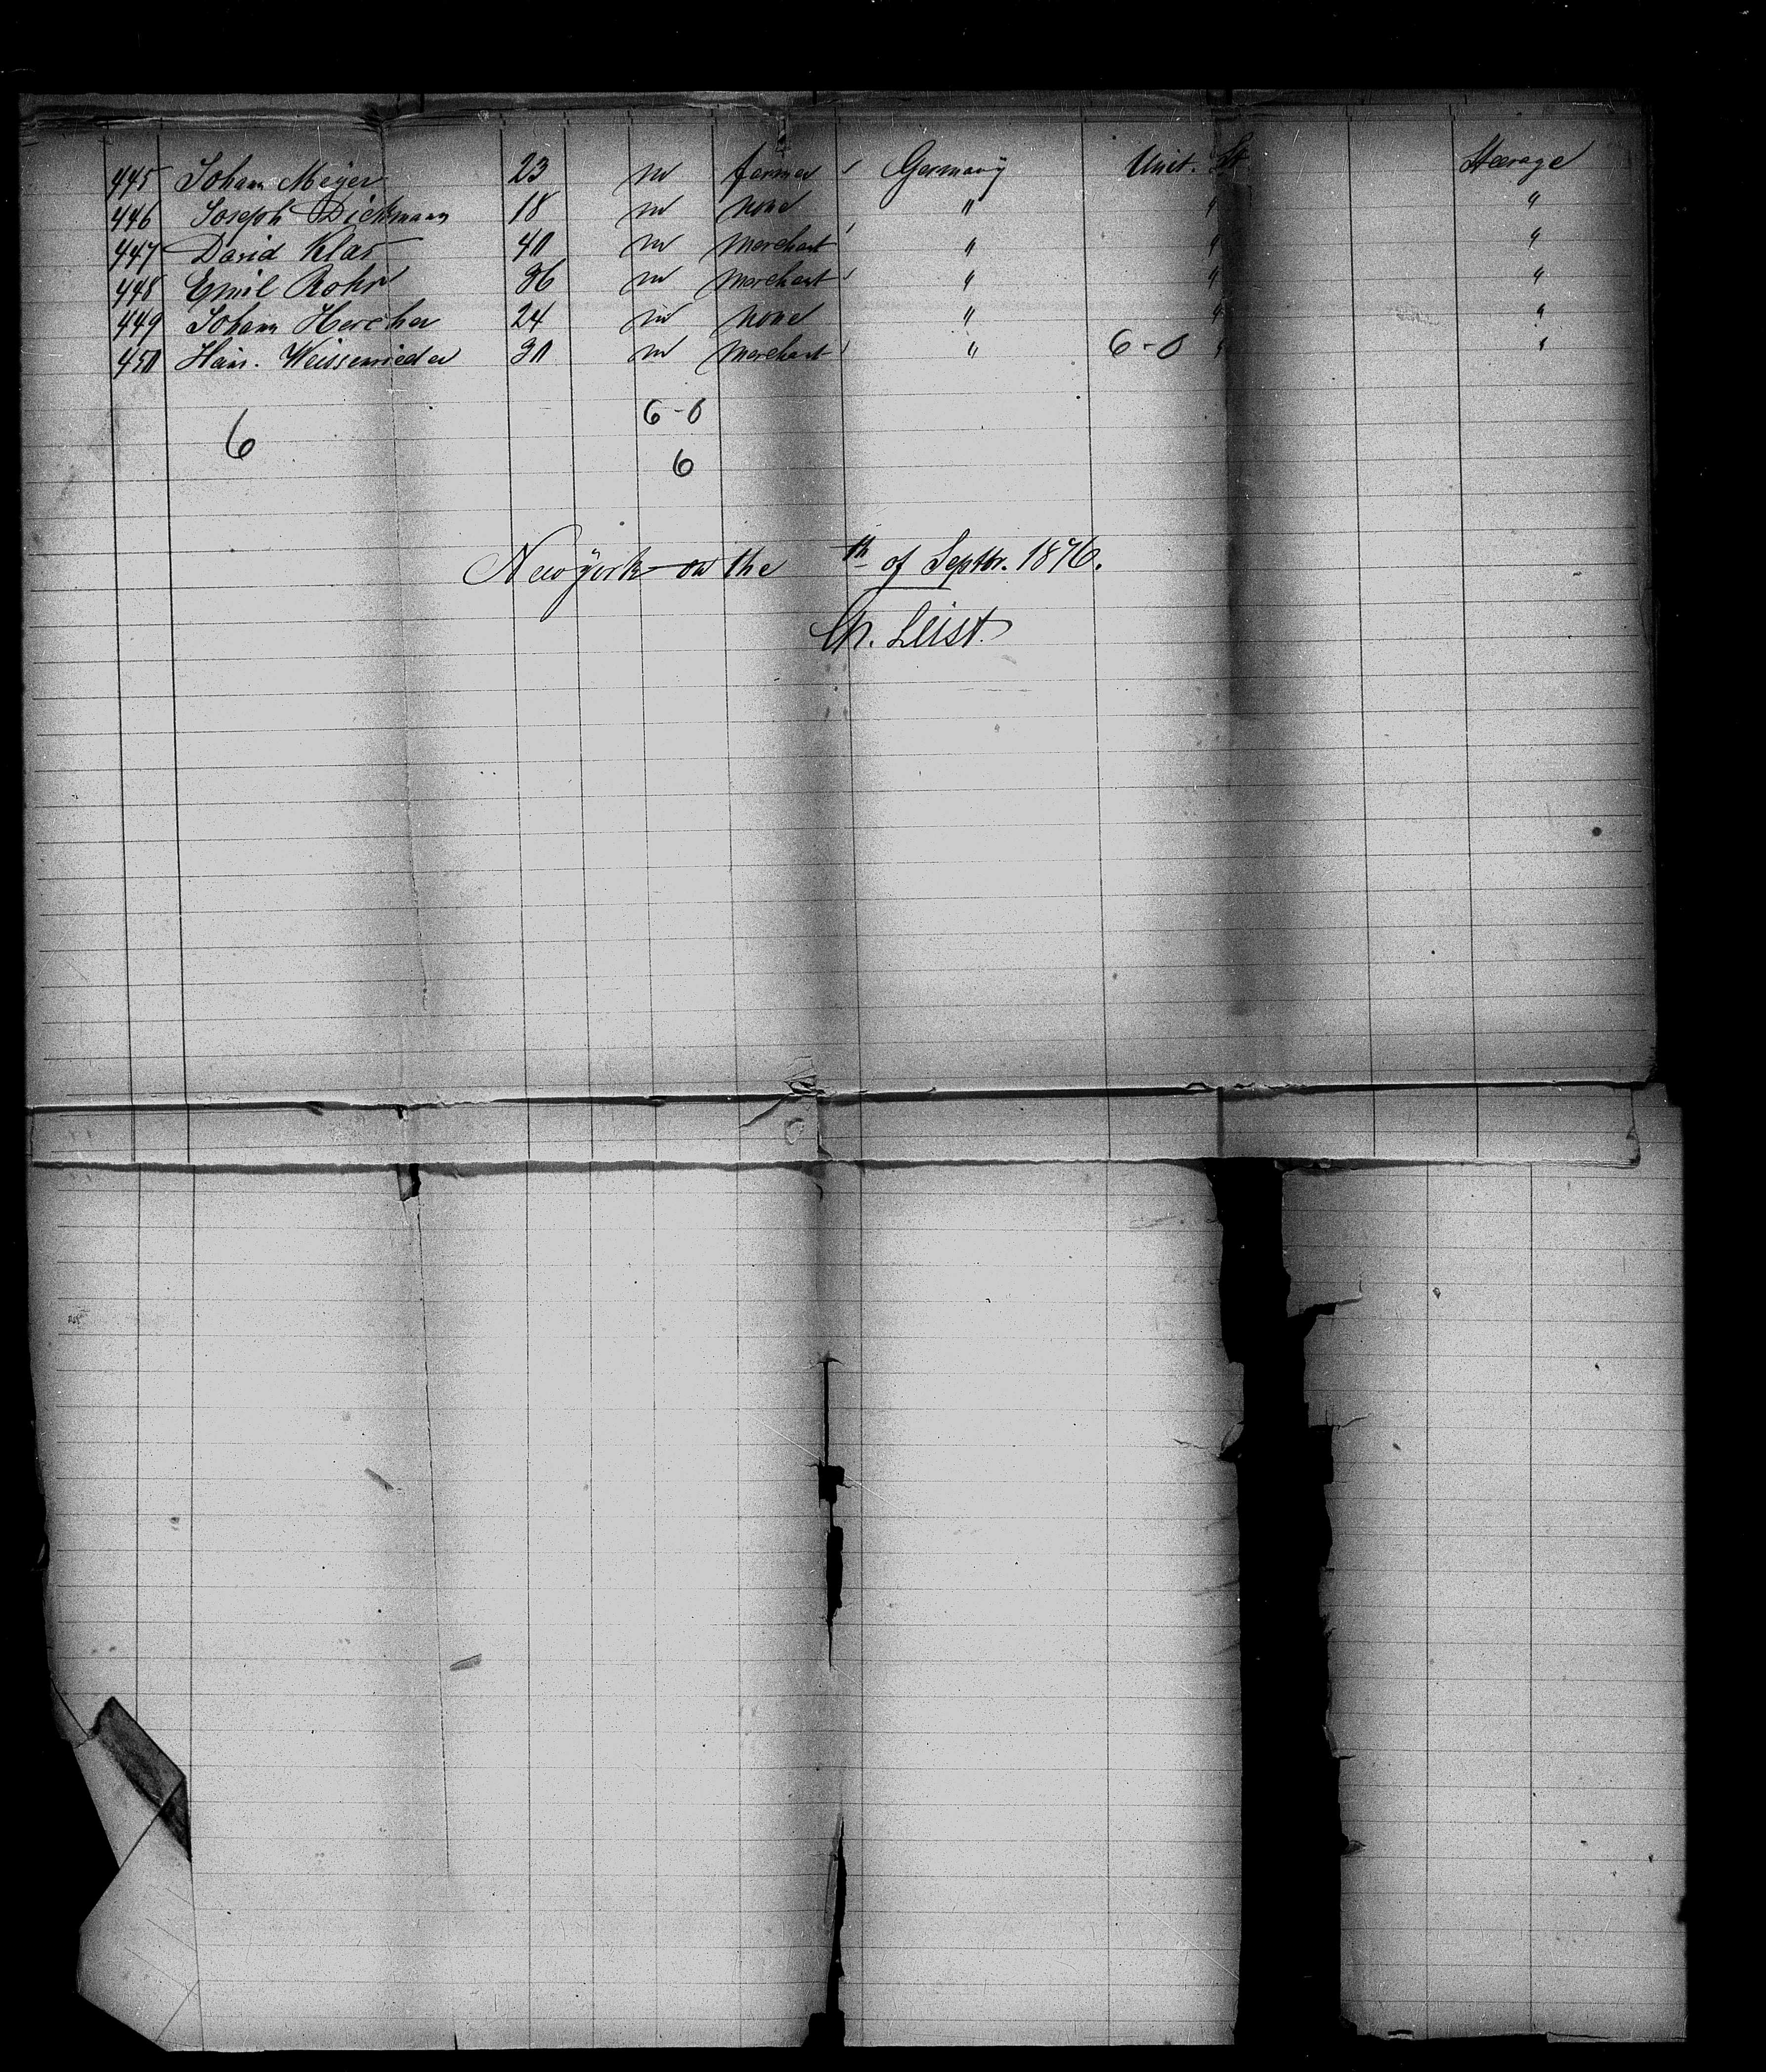 445 Johann Meijer 23 m farmer ' Germany Unit. St. Steerage
446 Joseph Dickmann 18 m none " " "
447 David Klar 40 m Merchant ' " " "
448 Emil Rohr 36 m Merchant ' " " "
449 Johann Hercher 24 m none " " "
450 Hein. Weissenrieder 30 m Merchant ' " 6-0 " "
6-0
6
6
New york on the th of Septbr. 1876.
Ch. Leist.